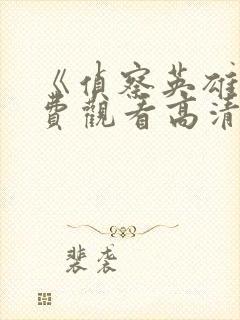 《偵察英雄
費觀看高清
裴袭